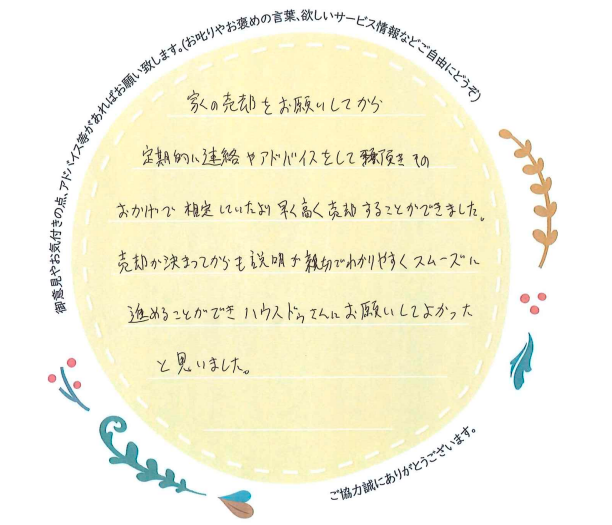 御意見やお気付きの点、アドバイス等があればお願い致します。(お叱りやお褒めの言葉、欲しいサービス情報などご自由にどうぞ)
家の売却をお願いしてから
定期的に連絡やアドバイスをして頂き その
おかげで 想定していたより早く高く売却することができました。
売却が決まってからも説明が親切でわかりやすくスムーズに
進めることができ ハウスドゥさんにお願いしてよかった
と思いました。
ご協力誠にありがとうございます。